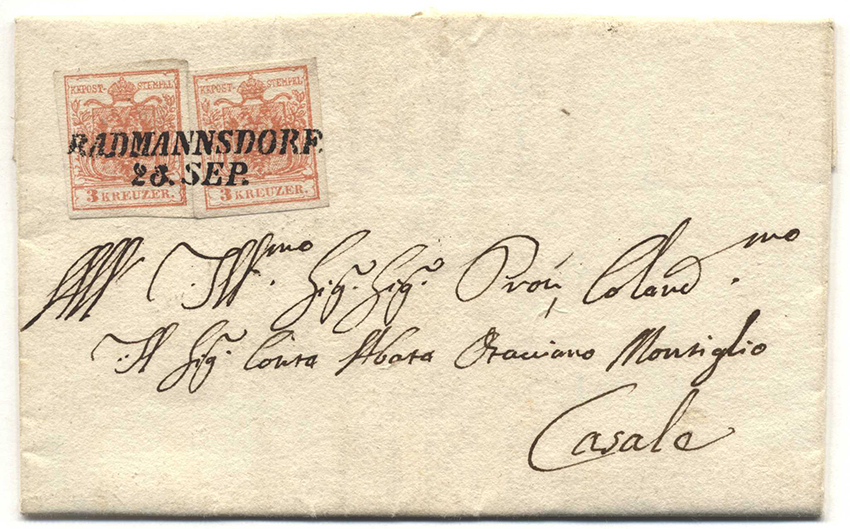 KKPOST-STEMPEL KKPOST-STEMPEL
RADMANNSDORF.
SEP.
3 KREUZER. 3 KREUZER.
All' Ill.mo Sig.r Sig.r Prōn, Coland.mo
Il Sig.r Conte Abate Ottaviano Monsiglio
Casale